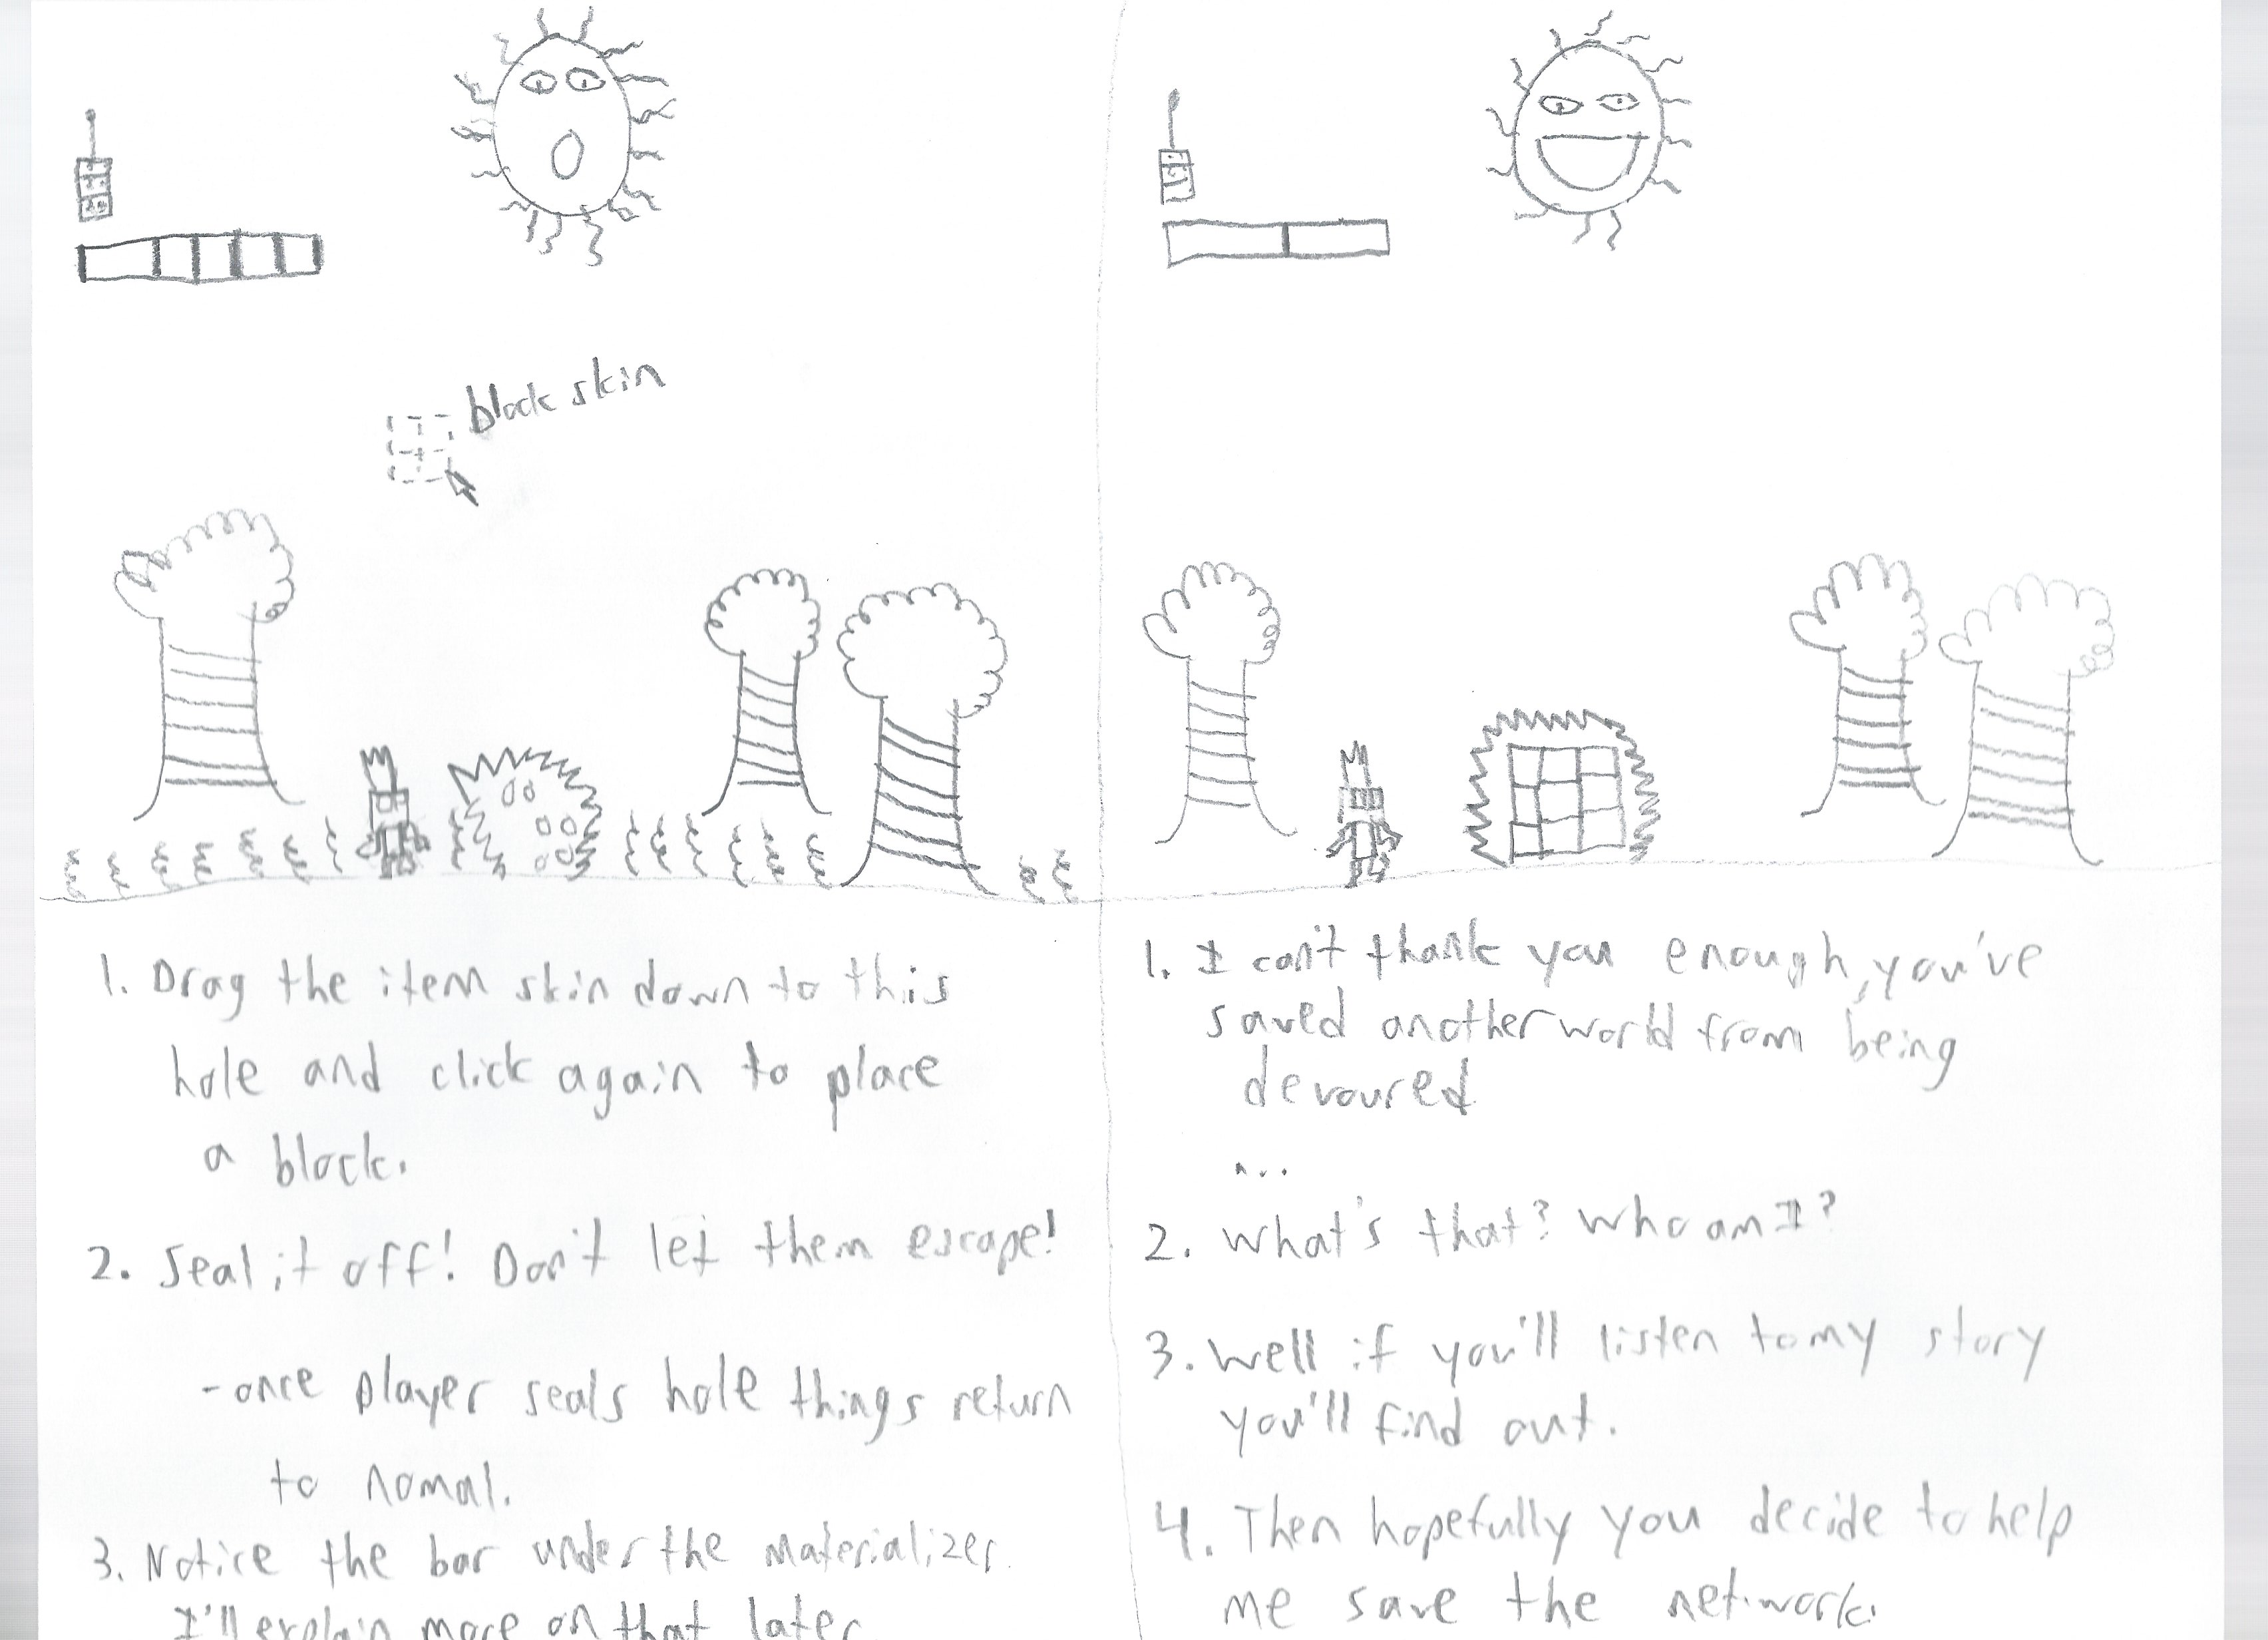 block skin
1. Drag the item skin down to this
hole and click again to place
a block.
2. Seal it off! Don't let them escape!
-once player seals hole things return
to nomal.
3. Notice the bar under the materializer.
I'll explain more on that later
1. I can't thank you enough, you've
saved another world from being
devoured
...
2. What's that? Who am I?
3. Well if you'll listen to my story
you'll find out.
4. Then hopefully you decide to help
me save the network.